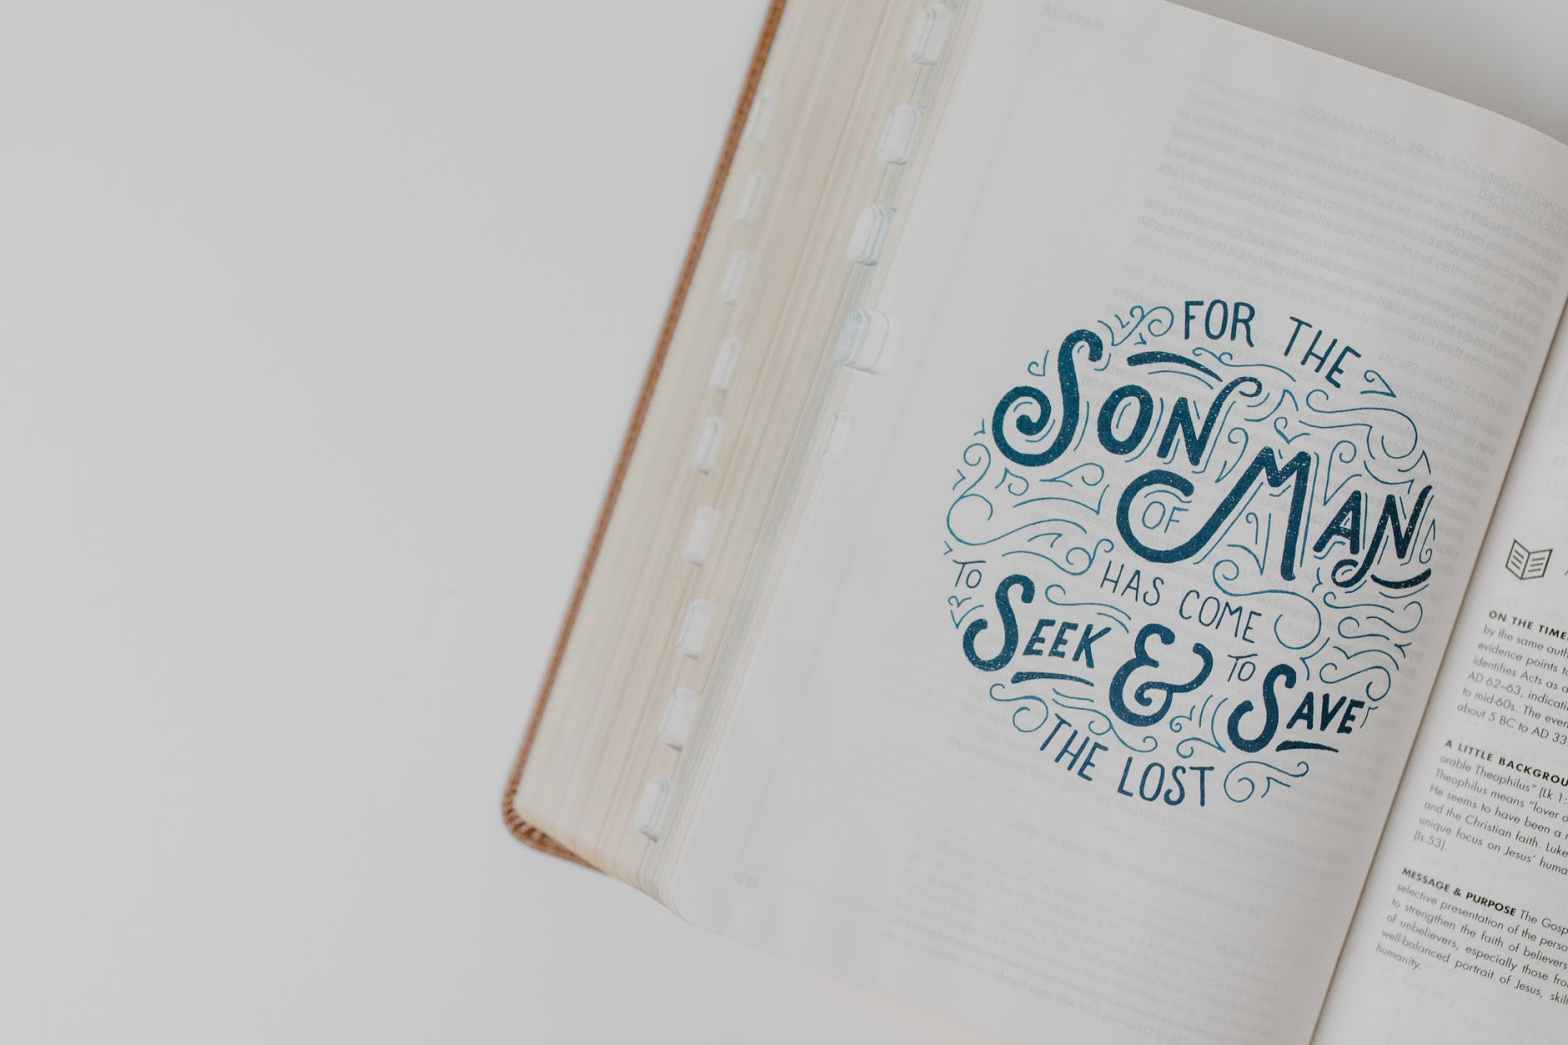 FOR THE
SON
OF MAN
HAS COME
TO SEEK & TO SAVE
THE LOST
ON THE TIME
by the same auth
evidence points to
identifies Acts as a
AD 62–63, indicati
to mid-60s. The even
about 5 BC to AD 33
A LITTLE BACKGROU
orable Theophilus" (Lk. 1:
Theophilus means "lover o
He seems to have been a
and the Christian faith. Luke
unique focus on Jesus' huma
MESSAGE & PURPOSE The Gosp
selective presentation of the perso
to strengthen the faith of believers
of unbelievers, especially those fro
well-balanced portrait of Jesus, skil
humanity.